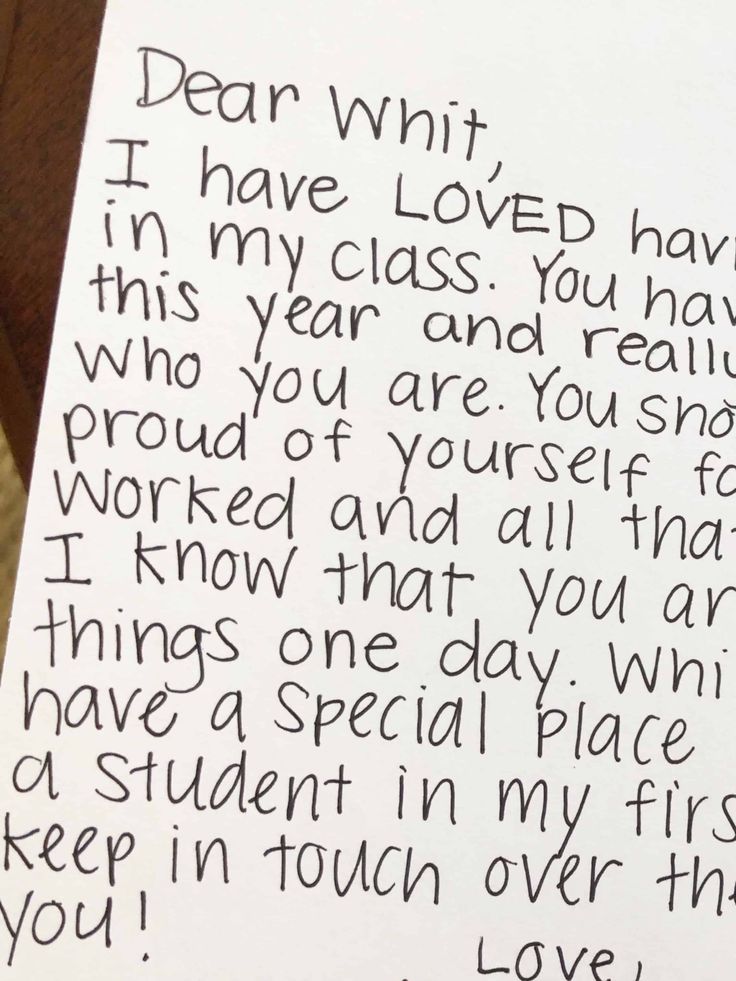 Dear Whit,
I have LOVED havi
in my class. You hav
this year and really
who you are. You sho
proud of yourself fo
worked and all that
I know that you ar
things one day. Whi
have a special place
a student in my firs
keep in touch over the
you!
Love,